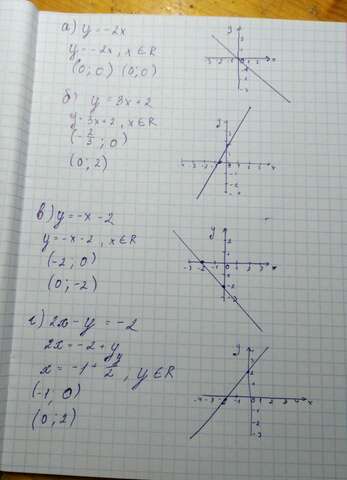 а) y = -2x
y = -2x, x ∈ R
(0; 0) (0; 0)
б) y = 3x + 2
y = 3x + 2, x ∈ R
(-2/3; 0)
(0, 2)
в) y = -x - 2
y = -x - 2, x ∈ R
(-2; 0)
(0; -2)
г) 2x - y = -2
2x = -2 + y
x = -1 + y/2, y ∈ R
(-1, 0)
(0; 2)